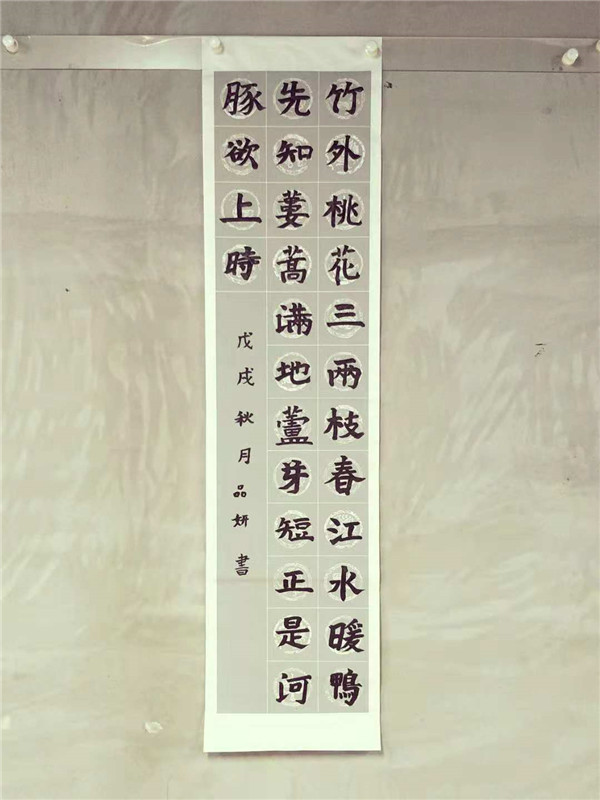 竹外桃花三兩枝春江水暖鴨
先知蔞蒿滿地蘆芽短正是河
豚欲上時
戊戌秋月品妍書